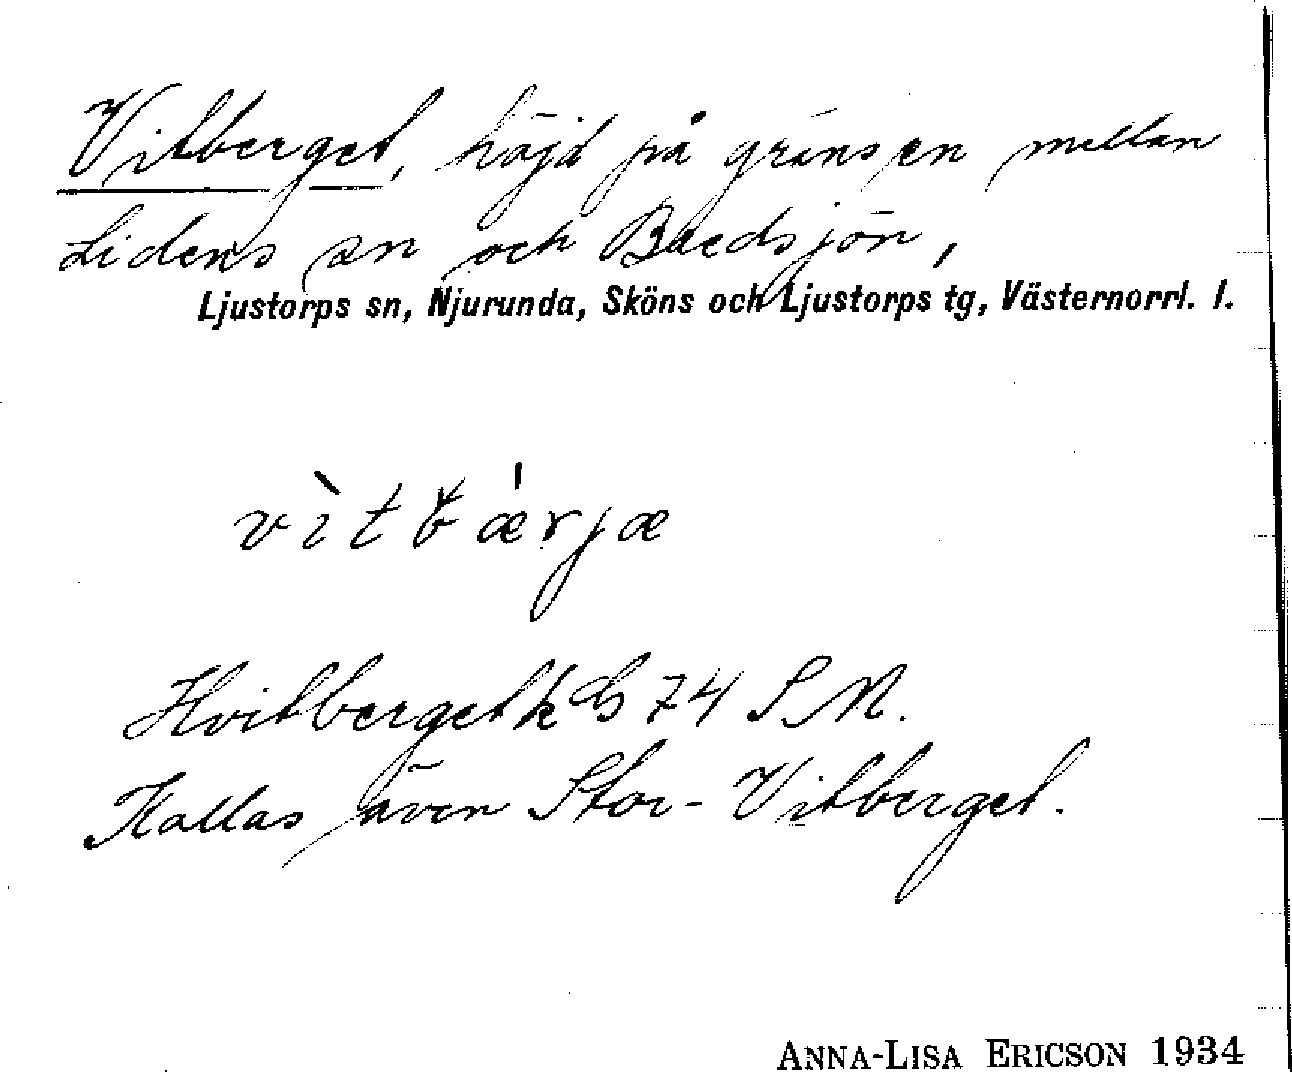 Vitberget, höjd på gränsen mellan
Lidens sn och Bredsjön,
Ljustorps sn, Njurunda, Sköns och Ljustorps tg, Västernorrl. l.
vìtbǽrjæ
Hvitberget k 74 S.N.
Kallas även Stor-Vitberget.
ANNA-LISA ERICSON 1934